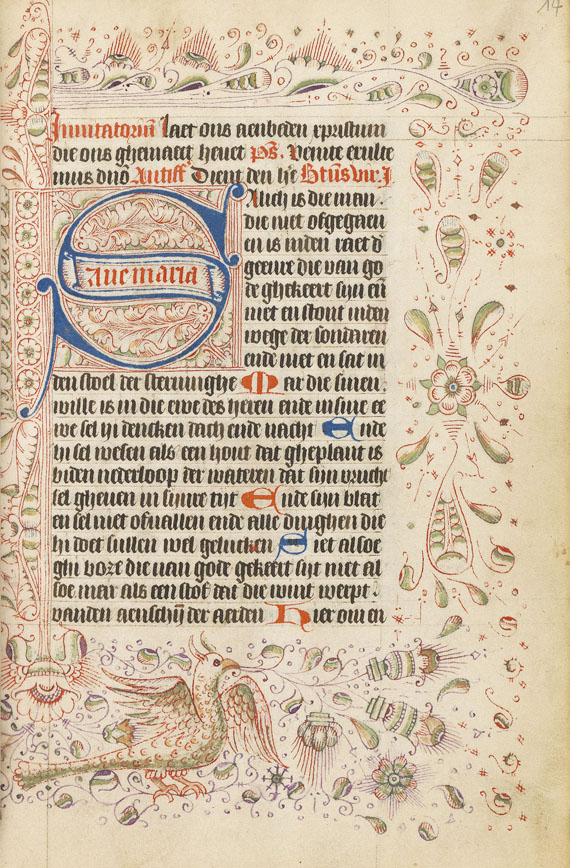 14
Inuitatoriū Laet ons aenbeden xpristum
die ons ghemaect heuet Ps. Venite exulte
mus dnō Antiff Dient den h'e Btūs vir. I
Auch is die man.
die niet ofgegaen
en is inden raet d'
geenre die van go
de ghekeert sijn en̄
niet en stont inden
wege der sondaren
ende niet en sat in
ave maria
den stoel der steruinghe Mar die sinen
wille is in die ewe des heren ende in sine ee
we sel hi dencken dach ende nacht Ende
hi sel wesen als een hout dat gheplant is
biden nederloop der wateren dat sijn vrucht
sel gheuen in sijnre tijt Ende sijn blat
en sel niet ofuallen ende alle dinghen die
hi doet sullen wel gelucken Niet alsoe
ghi boze die van gode gekeert sijt niet al
soe mar als een stof dat die wint werpt.
vanden aenschijn der aerden Hier om en